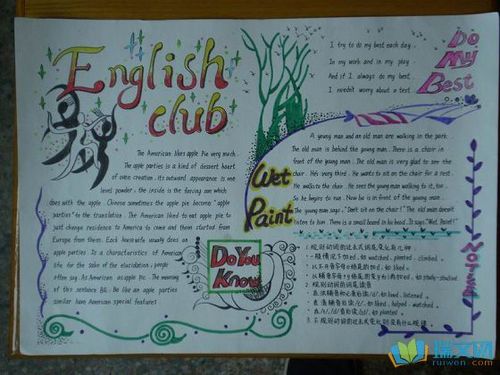 English
club
The American likes apple Pie very much.
The apple parties is a kind of dessert heart
of oven creation. Its outward appearance is one
level powder. the inside is the farcing arm which
does with the apple. Chinese sometimes the apple pie become "apple
parties" to the translation. The American liked to eat apple pie to
just change residence to America to come and them started from
Europe from them. Each housewife usually does an
apple parties. Is a characteristics of American
life for the sake of the elucidation, people
often say As American as apple pie. The meaning
of this sentence BE. Be like an apple parties
similar have American special features
Do You
Know
I try to do my best each day.
In my work and in my play
And if I always do my best.
I needn't worry about a test.
Do
My
Best
Wet
Paint
A young man and an old man are walking in the park.
The old man is behind the young man. There is a chair in
front of the young man. The old man is very glad to see the
chair. He's very tired. He wants to sit on the chair for a rest.
He walks to the chair. He sees the young man walking to it, too.
So he begins to run. Now he is in front of the young man.
The young man says, "Don't sit on the chair!" The old man doesn't
listen to him. There is a small board in his hand. It says, "Wet Paint!"
1. 规则动词的过去式词尾变化有几种
一般情况下加ed, 如 watched, planted, climbed.
以不发音字母e结尾的加d, 如 liked.
以辅音字母+y结尾的变y为i再加ed, 如 study-studied
2. 规则动词的词尾读音
在浊辅音和元音后读/d/, 如 lived, listened.
在清辅音后读/t/, 如 liked, helped, watched.
在/t/, /d/音后读/id/, 如 planted
3. 不规则动词的过去式变化则没有什么规律.
NOTICE
瑞文网
ruiwen.com